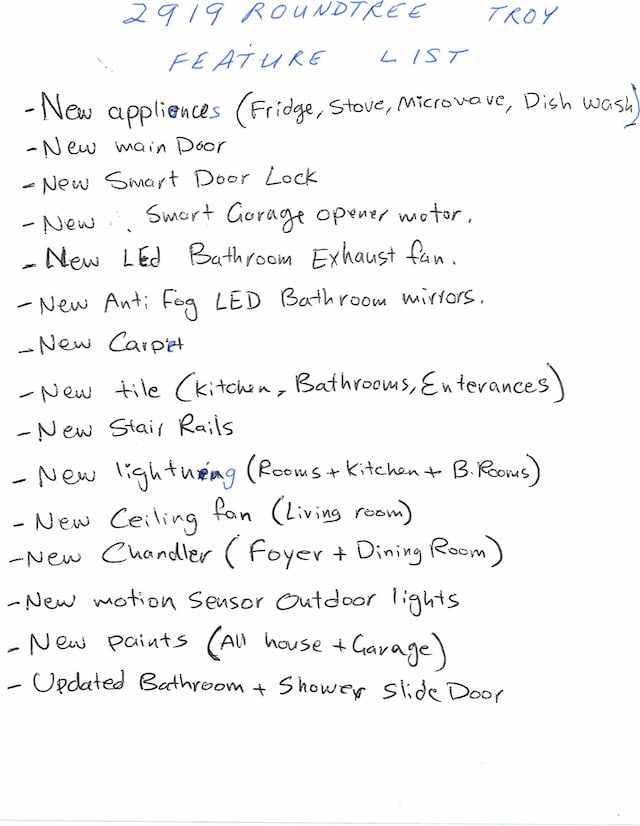 2919 ROUNDTREE TROY
FEATURE LIST
- New appliences (Fridge, Stove, Microvave, Dish wash)
- New main Door
- New Smart Door Lock
- New Smart Garage opener motor.
- New LEd Bathroom Exhaust fan.
- New Anti Fog LED Bathroom mirrors.
- New Carpet
- New tile (Kitchen, Bathrooms, Enterances)
- New Stair Rails
- New lightning (Rooms + Kitchen + B.Rooms)
- New Ceiling fan (Living room)
- New Chandler (Foyer + Dining Room)
- New motion Sensor Outdoor lights
- New paints (All house + Garage)
- Updated Bathroom + Shower Slide Door